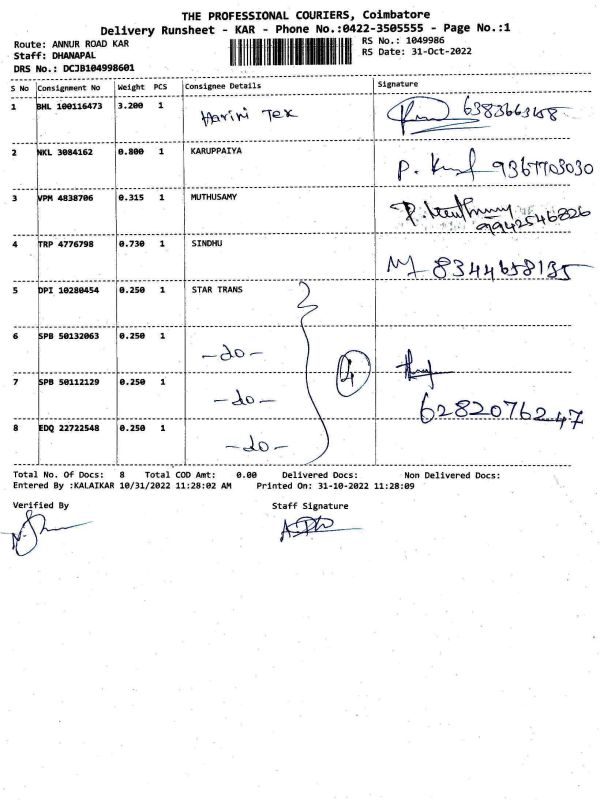 THE PROFESSIONAL COURIERS, Coimbatore
Delivery Runsheet - KAR - Phone No.:0422-3505555 - Page No.:1
Route: ANNUR ROAD KAR RS No.: 1049986
Staff: DHANAPAL RS Date: 31-Oct-2022
DRS No.: DCJB104998601
S No Consignment No Weight PCS Consignee Details Signature
1 BHL 100116473 3.200 1 Harini Tex 6383663158
2 NKL 3084162 0.800 1 KARUPPAIYA P. 9367703030
3 VPM 4838706 0.315 1 MUTHUSAMY P. 9942546826
4 TRP 4776798 0.730 1 SINDHU 8344658135
5 DPI 10280454 0.250 1 STAR TRANS
6 SPB 50132063 0.250 1 -do- 4
7 SPB 50112129 0.250 1 -do- 6282076247
8 EDQ 22722548 0.250 1 -do-
Total No. Of Docs: 8 Total COD Amt: 0.00 Delivered Docs: Non Delivered Docs:
Entered By :KALAIKAR 10/31/2022 11:28:02 AM Printed On: 31-10-2022 11:28:09
Verified By Staff Signature